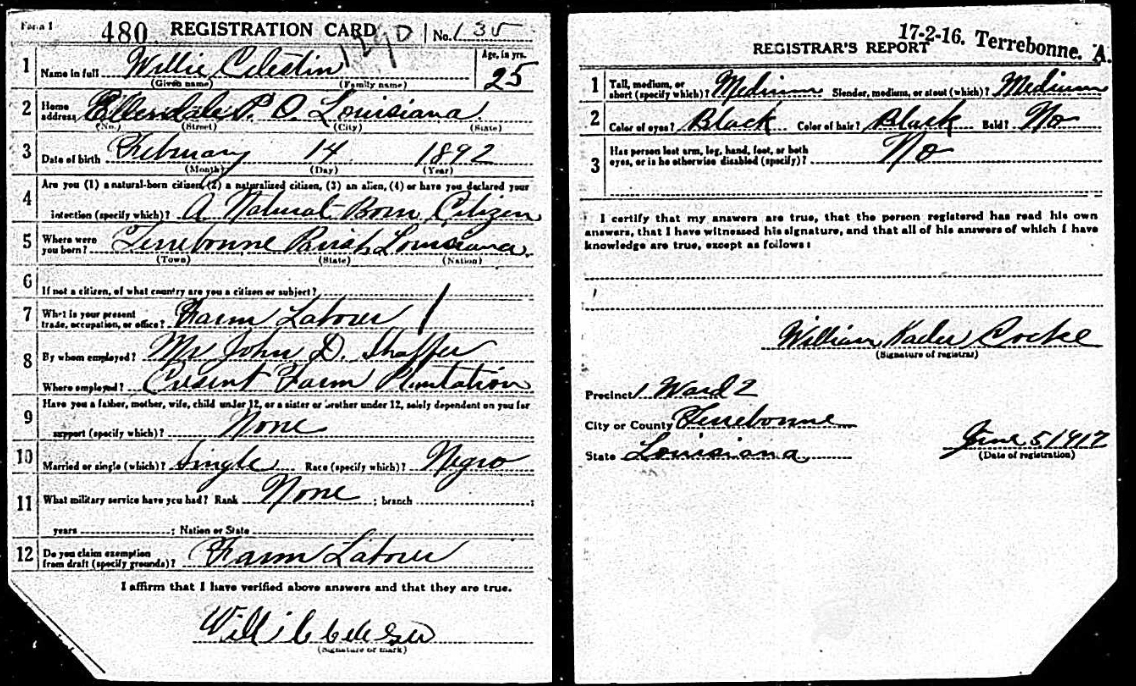 Form 1 480 REGISTRATION CARD 1290 No. 135
1 Name in full Willie Celestin Age, in yrs. 25
(Given name) (Family name)
2 Home address Ellendale P. O. Louisiana
(No.) (Street) (City) (State)
3 Date of birth February 14 1892
(Month) (Day) (Year)
4 Are you (1) a natural-born citizen, (2) a naturalized citizen, (3) an alien, (4) or have you declared your
intention (specify which)? A Natural Born Citizen
5 Where were you born? Terrebonne Parish Louisiana
(Town) (State) (Nation)
6 If not a citizen, of what country are you a citizen or subject?
7 What is your present trade, occupation, or office? Farm Labour
8 By whom employed? Mr John D. Shaffer
Where employed? Cresent Farm Plantation
9 Have you a father, mother, wife, child under 12, or a sister or brother under 12, solely dependent on you for
support (specify which)? None
10 Married or single (which)? Single Race (specify which)? Negro
11 What military service have you had? Rank None ; branch ;
years ; Nation or State
12 Do you claim exemption from draft (specify grounds)? Farm Labour
I affirm that I have verified above answers and that they are true.
(Signature or mark)
17-2-16. Terrebonne. A.
REGISTRAR'S REPORT
1 Tall, medium, or short (specify which)? Medium Slender, medium, or stout (which)? Medium
2 Color of eyes? Black Color of hair? Black Bald? No
3 Has person lost arm, leg, hand, foot, or both eyes, or is he otherwise disabled (specify)? No
I certify that my answers are true, that the person registered has read his own
answers, that I have witnessed his signature, and that all of his answers of which I have
knowledge are true, except as follows:
William Kader Cocke
(Signature of registrar)
Precinct 1 Ward 2
City or County Terrebonne
State Louisiana June 5 1917
(Date of registration)